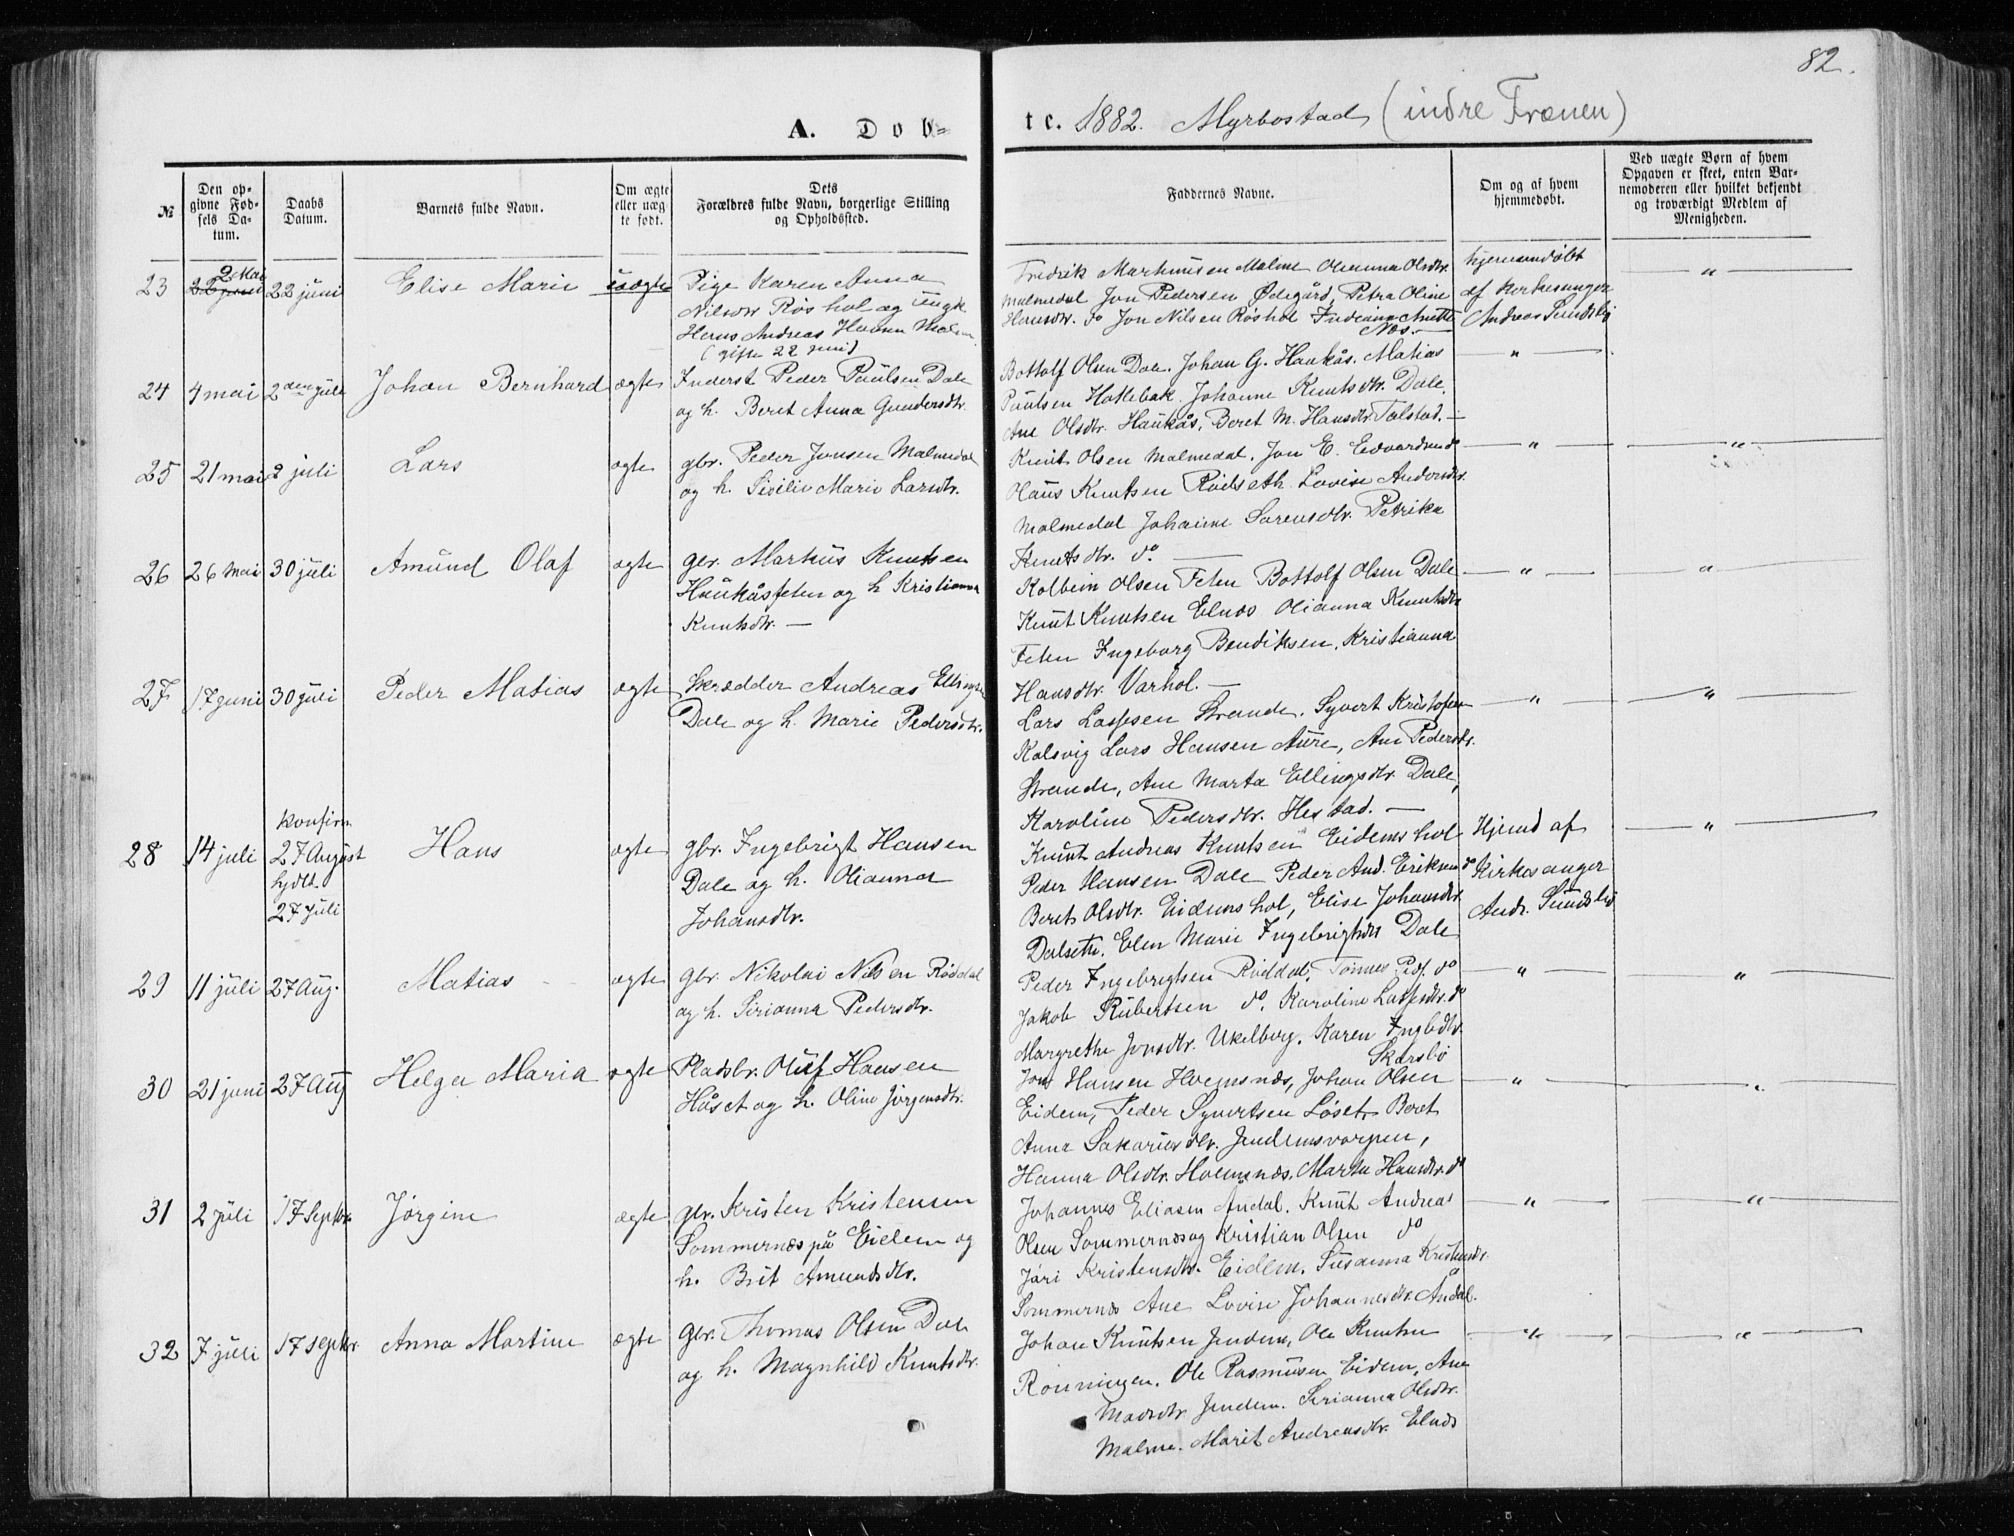 82.
A. Dob=
te. 1882. Myrbostad (indre Frænen)
№
Den op-
givne Fød-
sels Da-
tum.
Daabs
Datum.
Barnets fulde Navn.
Om ægte
eller uæg-
te født.
Dets
Forældres fulde Navn, borgerlige Stilling
og Opholdssted.
Faddernes Navne.
Om og af hvem
hjemmedøbt.
Ved uægte Børn af hvem
Opgaven er skeet, enten Bar-
nemoderen eller hvilket bekjendt
og troværdigt Medlem af
Menigheden.
23 2 Mai 22 juni Elise Marie uægte
Pige Karen Anna
Nilsdtr Røshol og ungk.
Hans Andreas Malme
(gifte 22 juni)
Fredrik Markussen Malme Olianna Olsdtr.
Malmedal Jon Pedersen Ødegård, Petra Oline
Hansdtr. do Jon Nilsen Røshol Anette
Næs. —
hjemmedøbt
af Kirkesanger
Andreas Sundsbø
"
24 4 mai 2den juli Johan Bernhard ægte
Inderst Peder Paulsen Dale
og h. Beret Anna Gundersdtr.
Bottolf Olsen Dale. Johan G. Haukås. Matias
Paulsen Hollebak. Johanne Knutsdtr. Dale.
Ane Olsdtr. Haukås, Beret M. Hansdtr. Tolstad. —
"
25 21 mai 2 juli Lars ægte
gbr. Peder Jonsen Malmedal
og h. Sisilie Marie Larsdtr.
Knut Olsen Malmedal. Jon E. Edvardsen do
Olaus Knutsen Rødseth. Lovise Andersdtr.
Malmedal Johanne Sørensdtr. Petrika
Knutsdtr. do. —
" "
26 26 Mai 30 juli Amund Olaf ægte
gbr. Markus Knutsen
Haukåsfeten og h. Kristianna
Knutsdtr. —
Kolbein Olsen Feten Bottolf Olsen Dale
Knut Knutsen Elnæs Olianna Knutsdtr
Feten Ingeborg Bendiksen, Kristianna
Hansdtr. Varhol. —
" "
27 17 juni 30 juli Peder Matias ægte
Skrædder Andreas Ellingsen
Dale og h. Marie Pedersdtr.
Lars Lassesen Strande, Syvert Kristofersen
Kolsvig Lars Hansen Aure, Ane Pedersdtr.
Strande, Ane Marta Ellingsdtr. Dale,
Karoline Pedersdtr. Hestad. —
" "
28 14 juli
konfirm.
27 August
hjdbt.
27 juli
Hans ægte
gbr. Ingebrigt Hansen
Dale og h. Olianna
Johansdtr.
Knut Andreas Knutsen Eidemshol
Peder Hansen Dale Peder And. Eriksen do
Beret Olsdtr. Eidemshol, Elise Johansdtr.
Dalsette. Elen Marie Ingebrigtsdtr Dale
Hjemd af
Kirkesanger
Andr. Sundsbø
"
29 11 juli 27 Aug. Matias ægte
gbr. Nikolai Nilsen Røddal
og h. Serianna Pedersdtr.
Peder Ingebrigtsen Røddal, Tønnes Peds. do
Jakob Rubertsen do. Karoline Lassesdtr. do
Margrethe Jonsdtr. Ukelberg. Karen Ingebdtr.
Skarsbø
" "
30 21 juni 27 Aug Helga Maria ægte
Pladsbr. Oluf Hansen
Håset og h. Oline Jørgensdtr.
Jon Hansen Hoemsnæs, Johan Olsen
Eidem, Peder Syvertsen Løset Beret
Anna Sakariasdtr. Jendemsvorpen,
Hanna Olsdtr. Hoemsnæs. Marta Hansdtr. do
"
31 2 juli 17 Septbr. Jørgine ægte
gbr. Kristen Kristensen
Sommernæs på Eidem og
h. Brit Amundsdtr.
Johannes Eliasen Andal. Knut Andreas
Olsen Sommernæs og Kristian Olsen do
Jari Kristensdtr. Eidem. Susanna Kristensdtr.
Sommernæs Ane Lovise Johannesdtr. Andal.
" "
32 7 juli 17 septbr. Anna Martine ægte
gbr. Thomas Olsen Dale
og h. Magnhild Knutsdtr.
Johan Knutsen Jendem, Ole Knutsen
Rønningen. Ole Rasmusen Eidem, Ane
Madsdtr Jendem. Serianna Olsdtr.
Malme. Marit Andreasdtr. Elnæs
" "